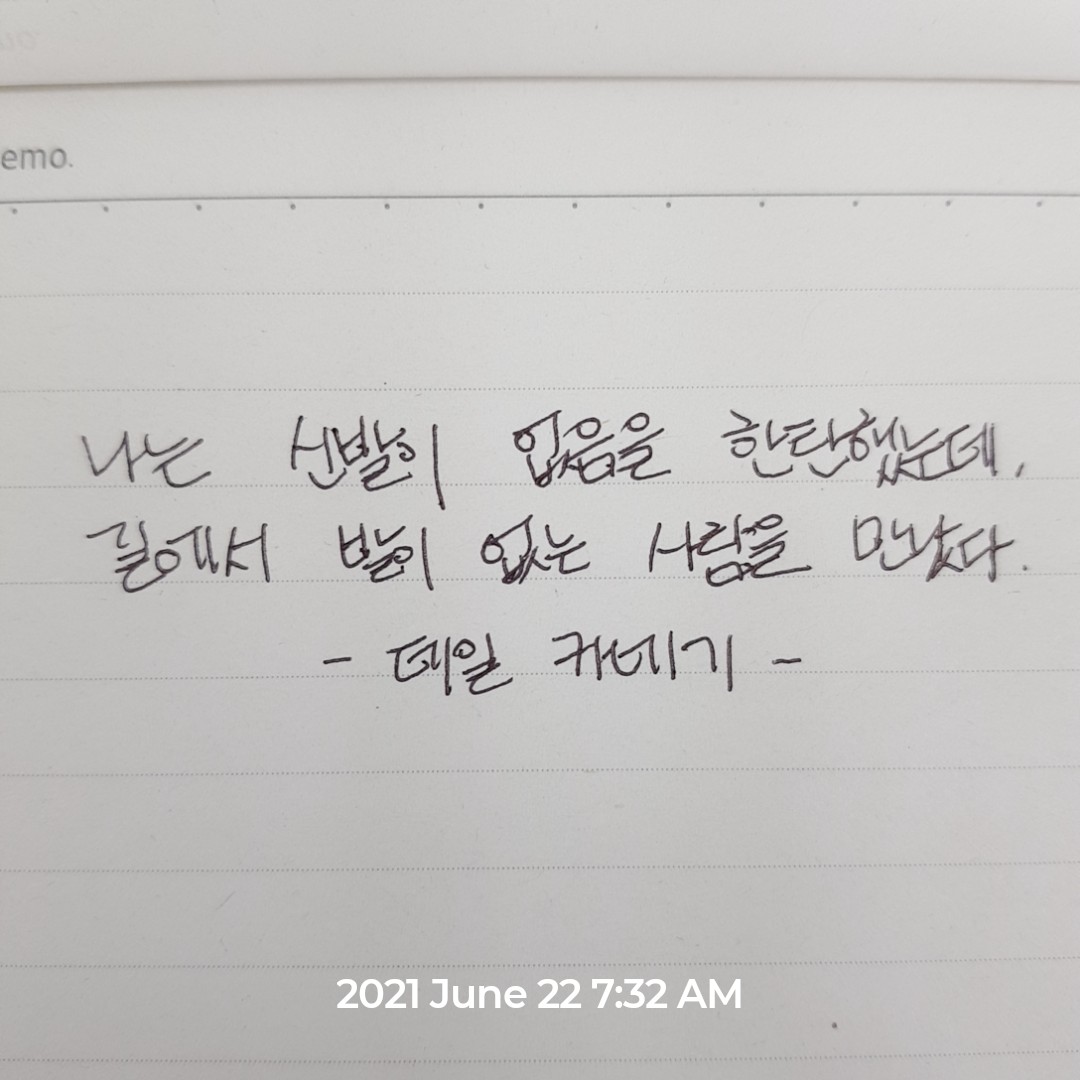 emo.
나는 신발이 없음을 한탄했는데,
길에서 발이 없는 사람을 만났다.
- 데일 카네기 -
2021 June 22 7:32 AM